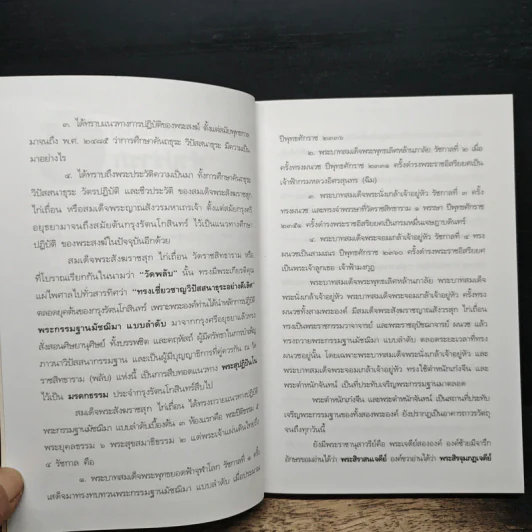 ๓. ได้ทราบแนวทางการปฏิบัติของพระสงฆ์ ตั้งแต่สมัยพุทธกาล
มาจนถึง พ.ศ. ๒๔๗๕ ว่าการศึกษาคันถธุระ วิปัสสนาธุระ มีความเป็น
มาอย่างไร
๔. ได้ทราบถึงพระประวัติความเป็นมา ทั้งการศึกษาคันถธุระ
วิปัสสนาธุระ วัตรปฏิบัติ และชีวประวัติ ของสมเด็จพระสังฆราชสุก
ไก่เถื่อน หรือสมเด็จพระญาณสังวรมหาเถรเจ้า ตั้งแต่สมัยกรุงศรี
อยุธยามาจนถึงสมัยต้นกรุงรัตนโกสินทร์ ไว้เป็นแนวทางศึกษา
ปฏิบัติ ของพระสงฆ์ในปัจจุบันอีกด้วย
สมเด็จพระสังฆราชสุก ไก่เถื่อน วัดราชสิทธาราม หรือ
ที่โบราณเรียกกันในนามว่า "วัดพลับ" นั้น ทรงมีพระเกียรติคุณ
แผ่ไพศาลไปทั่วสารทิศว่า "ทรงเชี่ยวชาญวิปัสสนาธุระอย่างดีเลิศ"
ตลอดยุคต้นของกรุงรัตนโกสินทร์ เพราะพระองค์ท่านได้นำหลักการปฏิบัติ
พระกรรมฐานมัชฌิมา แบบลำดับ มาจากกรุงศรีอยุธยาแล้วทรง
สั่งสอนศิษยานุศิษย์ ทั้งบรรพชิต และคฤหัสถ์ ผู้มีศรัทธาในการบำเพ็ญ
ภาวนาวิปัสสนากรรมฐาน และเป็นผู้มีบุญญาธิการที่คู่ควรกัน ณ วัด
ราชสิทธาราม (พลับ) แห่งนี้ เป็นการสืบทอดแนวทาง พระสุปฏิปันโน
ไว้เป็น มรดกธรรม ประจำกรุงรัตนโกสินทร์สืบไป
สมเด็จพระสังฆราชสุก ไก่เถื่อน ได้ทรงถวายแนวทางปฏิบัติ
พระกรรมฐานมัชฌิมา แบบลำดับเบื้องต้น ๓ ห้องแรกคือ พระปีติธรรม ๕
พระยุคลธรรม ๖ พระสุขสมาธิธรรม ๒ แด่พระเจ้าแผ่นดินไทยถึง
๔ รัชกาล คือ
๑. พระบาทสมเด็จพระพุทธยอดฟ้าจุฬาโลก รัชกาลที่ ๑ ครั้ง
เสด็จมาทรงทบทวนพระกรรมฐานมัชฌิมา แบบลำดับ เมื่อประมาณ
ปีพุทธศักราช ๒๓๓๖
๒. พระบาทสมเด็จพระพุทธเลิศหล้านภาลัย รัชกาลที่ ๒ เมื่อ
ครั้งทรงผนวช ปีพุทธศักราช ๒๓๓๑ ครั้งดำรงพระราชอิสริยยศเป็น
เจ้าฟ้ากรมหลวงอิศรสุนทร (ฉิม)
๓. พระบาทสมเด็จพระนั่งเกล้าเจ้าอยู่หัว รัชกาลที่ ๓ ครั้ง
ทรงผนวช และทรงจำพรรษาที่วัดราชสิทธาราม ๑ พรรษา ปีพุทธศักราช
ครั้งดำรงพระราชอิสริยยศเป็นกรมหมื่นเจษฎาบดินทร์
๔. พระบาทสมเด็จพระจอมเกล้าเจ้าอยู่หัว รัชกาลที่ ๔ ทรง
ผนวชเป็นสามเณร ปีพุทธศักราช ๒๓๖๐ ครั้งดำรงพระราชอิสริยยศ
เป็นพระเจ้าลูกเธอ เจ้าฟ้ามงกุฎ
พระบาทสมเด็จพระพุทธเลิศหล้านภาลัย พระบาทสมเด็จ
พระนั่งเกล้าเจ้าอยู่หัว พระบาทสมเด็จพระจอมเกล้าเจ้าอยู่หัว ครั้งทรง
ผนวชทั้งสามพระองค์ มีสมเด็จพระสังฆราชญาณสังวรสุก ไก่เถื่อน
ทรงเป็นพระราชกรรมวาจาจารย์ และพระราชอุปัชฌาจารย์ ผนวช แล้ว
ทรงถวายพระกรรมฐานมัชฌิมา แบบลำดับ ตลอดระยะเวลาที่ทรง
ผนวชอยู่นั้น โดยเฉพาะพระบาทสมเด็จพระนั่งเกล้าเจ้าอยู่หัว และ
พระบาทสมเด็จพระจอมเกล้าเจ้าอยู่หัว ทรงใช้ตำหนักเก๋งจีน และ
พระตำหนักจันทน์ เป็นที่ประทับเจริญพระกรรมฐานมาตลอด
พระตำหนักเก๋งจีน และพระตำหนักจันทน์ เป็นสถานที่ประทับ
เจริญพระกรรมฐานของทั้งสองพระองค์ ยังปรากฏเป็นอาคารถาวรวัตถุ
จนถึงทุกวันนี้
ยังมีพระราชานุสาวรีย์คือ พระเจดีย์สององค์ องค์ซ้ายมีจารึก
อักษรขอมอ่านได้ว่า พระสิราสนเจดีย์ องค์ขวาอ่านได้ว่า พระสิรจุมภฏเจดีย์